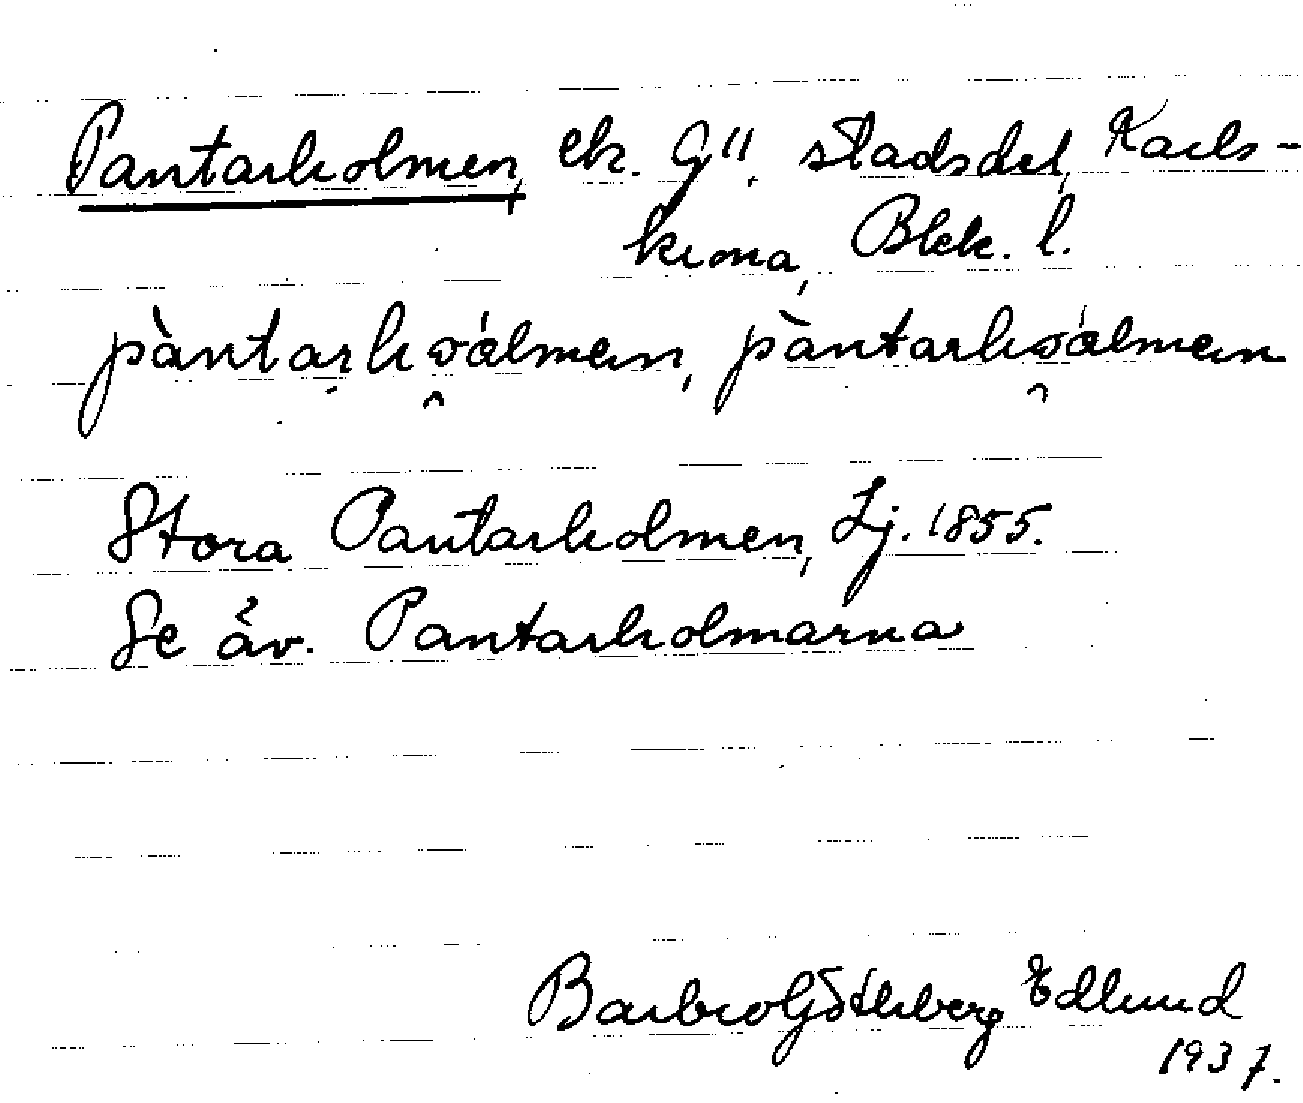 Pantarholmen, ek. G11. stadsdel, Karls-
krona, Blek. l.
pàntarhɷ́lmen, pàntarhɷ́lmen
Stora Pantarholmen, Lj. 1855.
Se äv. Pantarholmarna
Barbro Götherberg Edlund
1937.